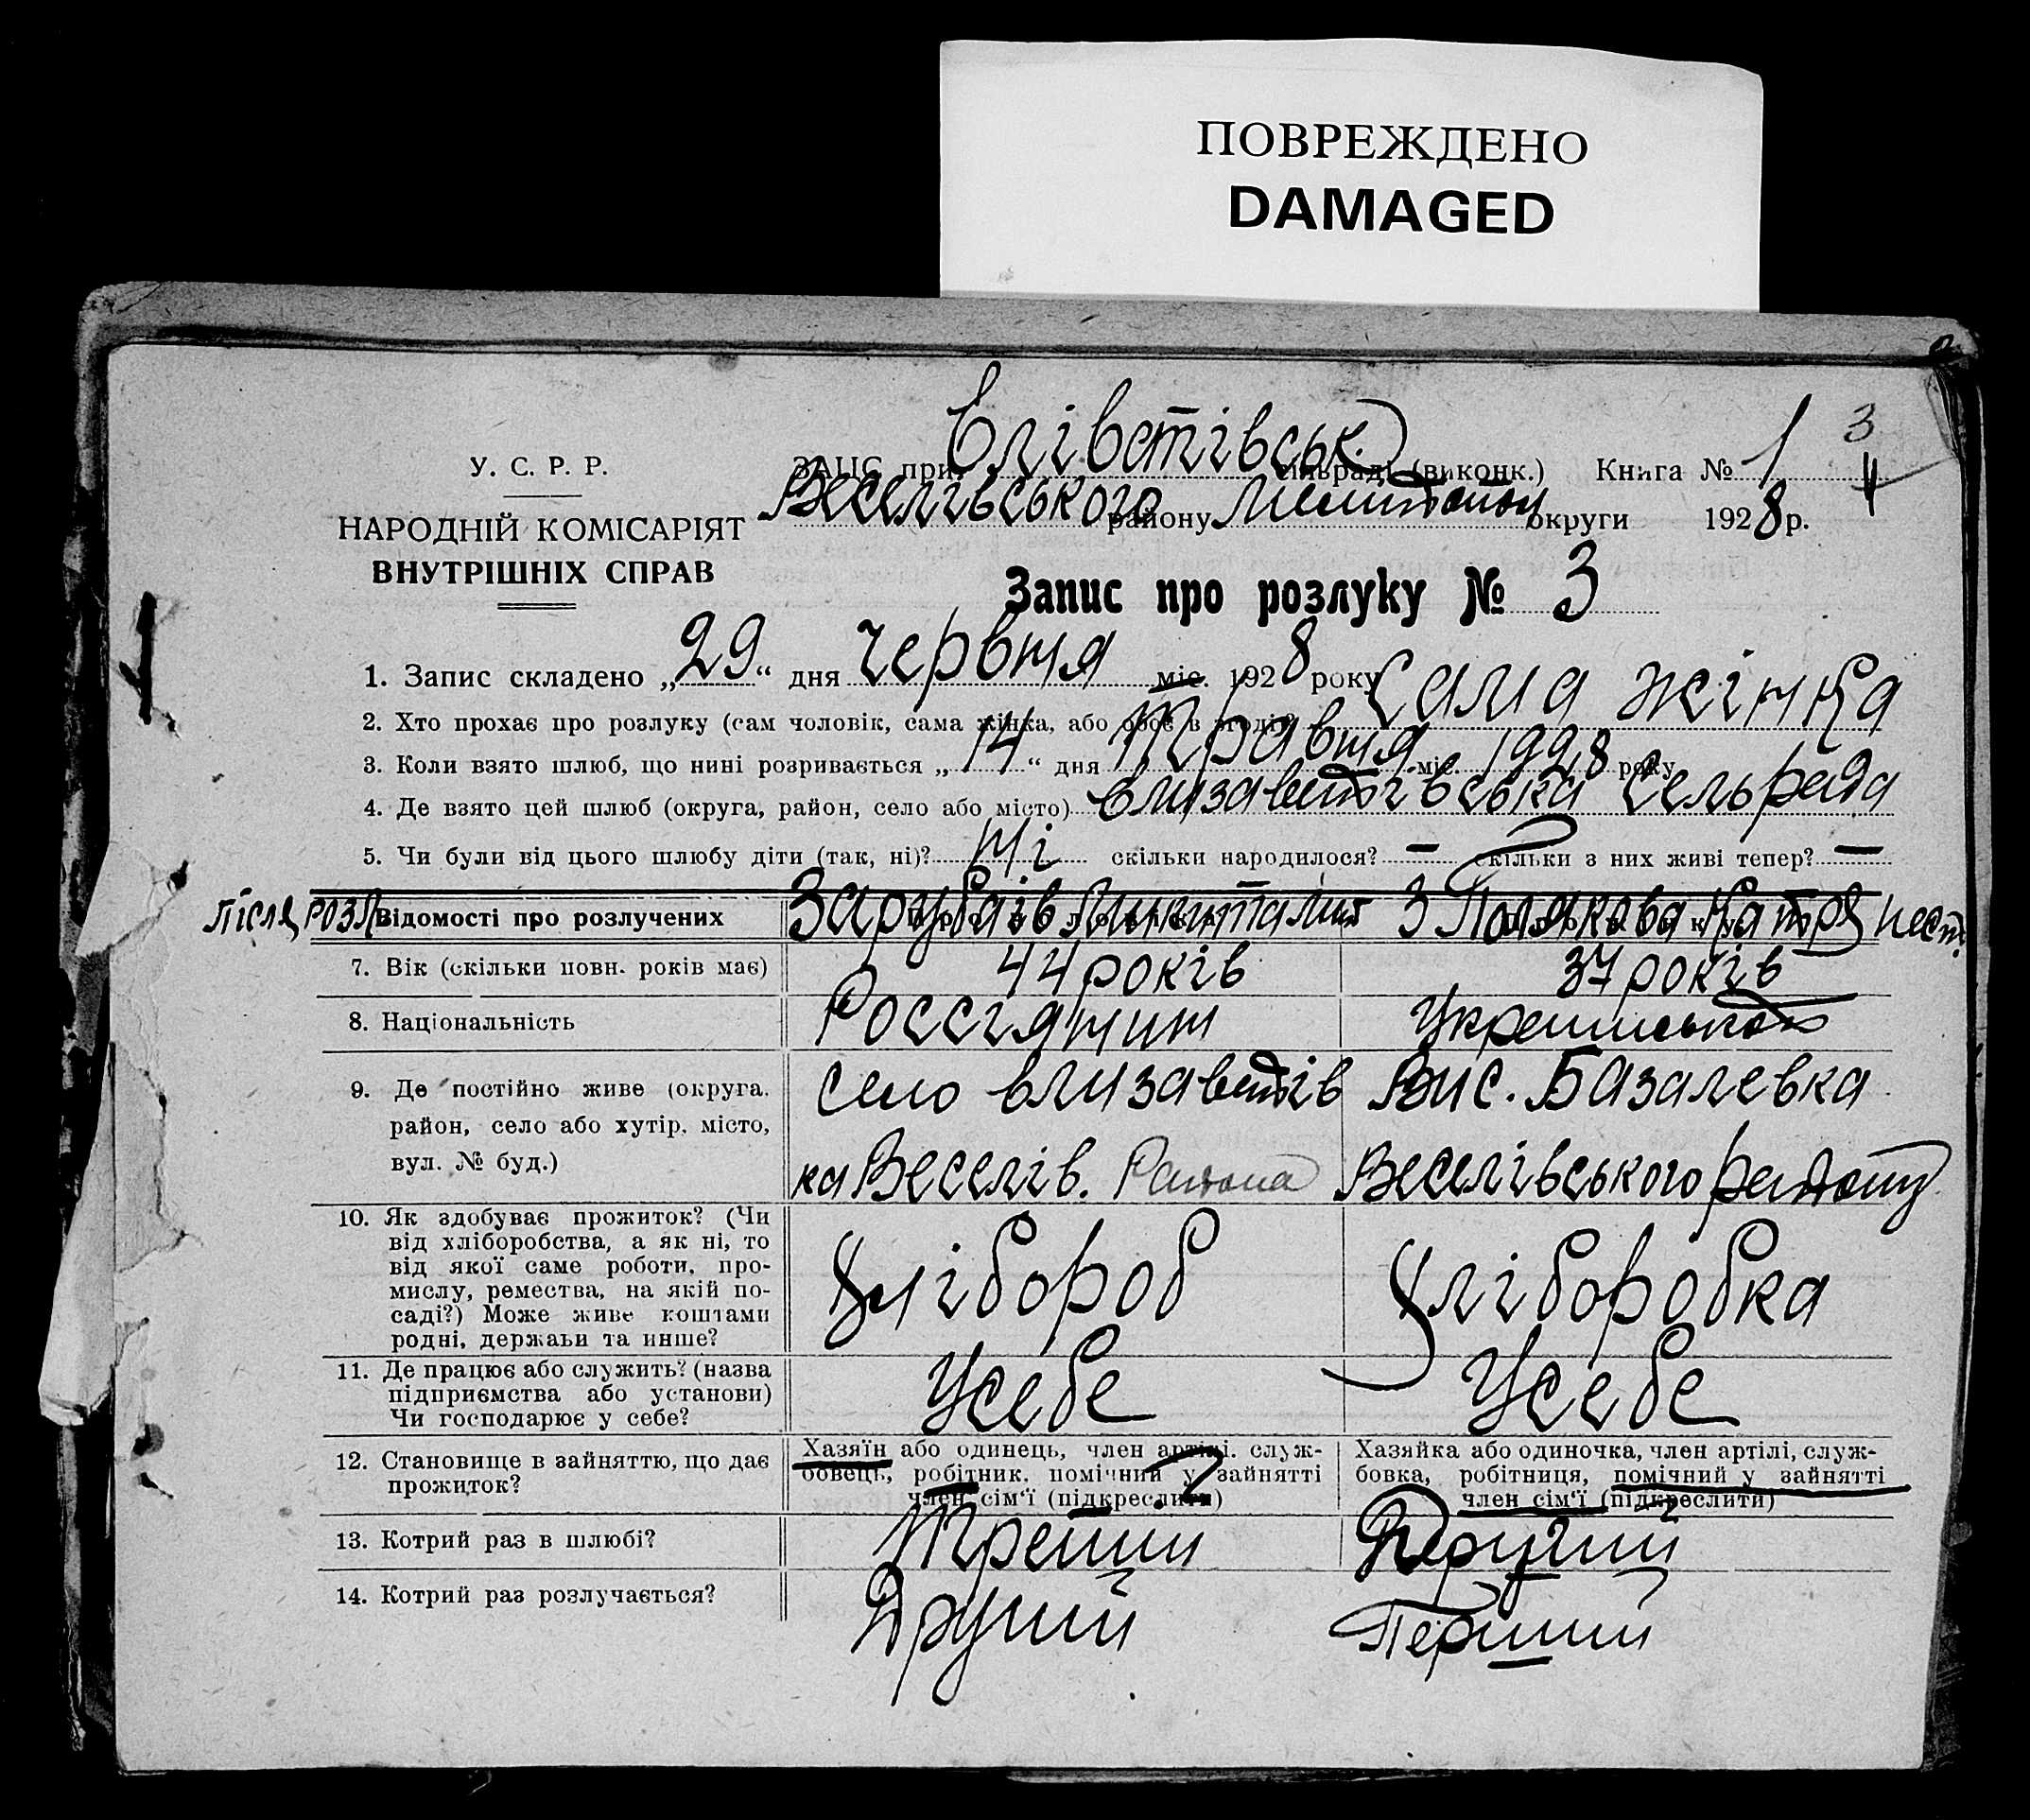 ПОВРЕЖДЕНО
DAMAGED
У. С. Р. Р.
НАРОДНІЙ КОМІСАРІЯТ
ВНУТРІШНІХ СПРАВ
ЗАЦС при сільраді (виконк.) Книга № 1 3
Веселівського району округи 1928 р.
Запис про розлуку № 3
1. Запис складено „29“ дня червня міс. 1928 року
2. Хто прохає про розлуку (сам чоловік, сама жінка, або обоє в згоді)? Сама жінка
3. Коли взято шлюб, що нині розривається „14“ дня травня міс. 1928 року
4. Де взято цей шлюб (округа, район, село або місто) Єлизаветівська сельрада
5. Чи були від цього шлюбу діти (так, ні)? Ні скільки народилося? — скільки з них живі тепер? —
після розл Відомості про розлучених Зарубаів Полякова
7. Вік (скільки повн. років має) 44 років 37 років
8. Національність Россіянин
9. Де постійно живе (округа, село Єлизаветів Вис. Базалевка
район, село або хутір, місто,
вул. № буд.) ка Веселів. Района Веселівського району
10. Як здобуває прожиток? (Чи
від хліборобства, а як ні, то
від якої саме роботи, про-
мислу, ремества, на якій по-
саді?) Може живе коштами
родні, держави та инше? Хлібороб Хліборобка
11. Де працює або служить? (назва
підприємства або установи)
Чи господарює у себе? Усебе Усебе
12. Становище в зайняттю, що дає
прожиток?
Хазяїн або одинець, член артілі, служ-
бовець, робітник, помічний у зайнятті
член сім'ї (підкреслити)
Хазяйка або одиночка, член артілі, служ-
бовка, робітниця, помічний у зайнятті
член сім'ї (підкреслити)
13. Котрий раз в шлюбі? Третий Другий
14. Котрий раз розлучається? Другий Перший